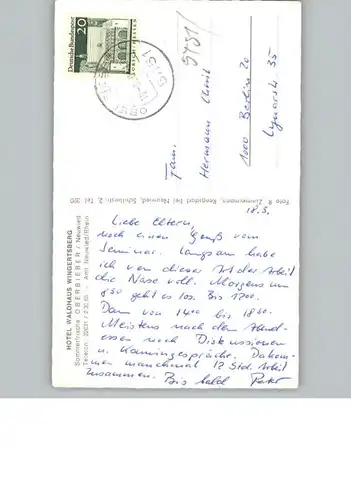 Deutsche Bundespost
20
5451
Fam.
Hermann
1000 Berlin 20
Lynarstr. 35
Foto R. Zimmermann, Rengsdorf bei Neuwied, Schillerstr. 2, Tel. 320
HOTEL WALDHAUS WINGERTSBERG
Sommerfrische OBERBIEBER / Neuwied
Telefon: 22631 / 2 30 65 — Amt Neuwied/Rhein
18.5.
Liebe Eltern,
noch einen Gruß vom
Seminar. Langsam habe
ich von dieser Art der Arbeit
die Nase voll. Morgens um
8⁵⁰ geht es los. Bis 12⁰⁰.
Dann von 14⁰⁰ bis 18⁰⁰.
Meistens nach dem Abend-
essen noch Diskussionen
u. Kamingespräche. Da kom-
men manchmal 12 Std. Arbeit
zusammen. Bis bald Peter